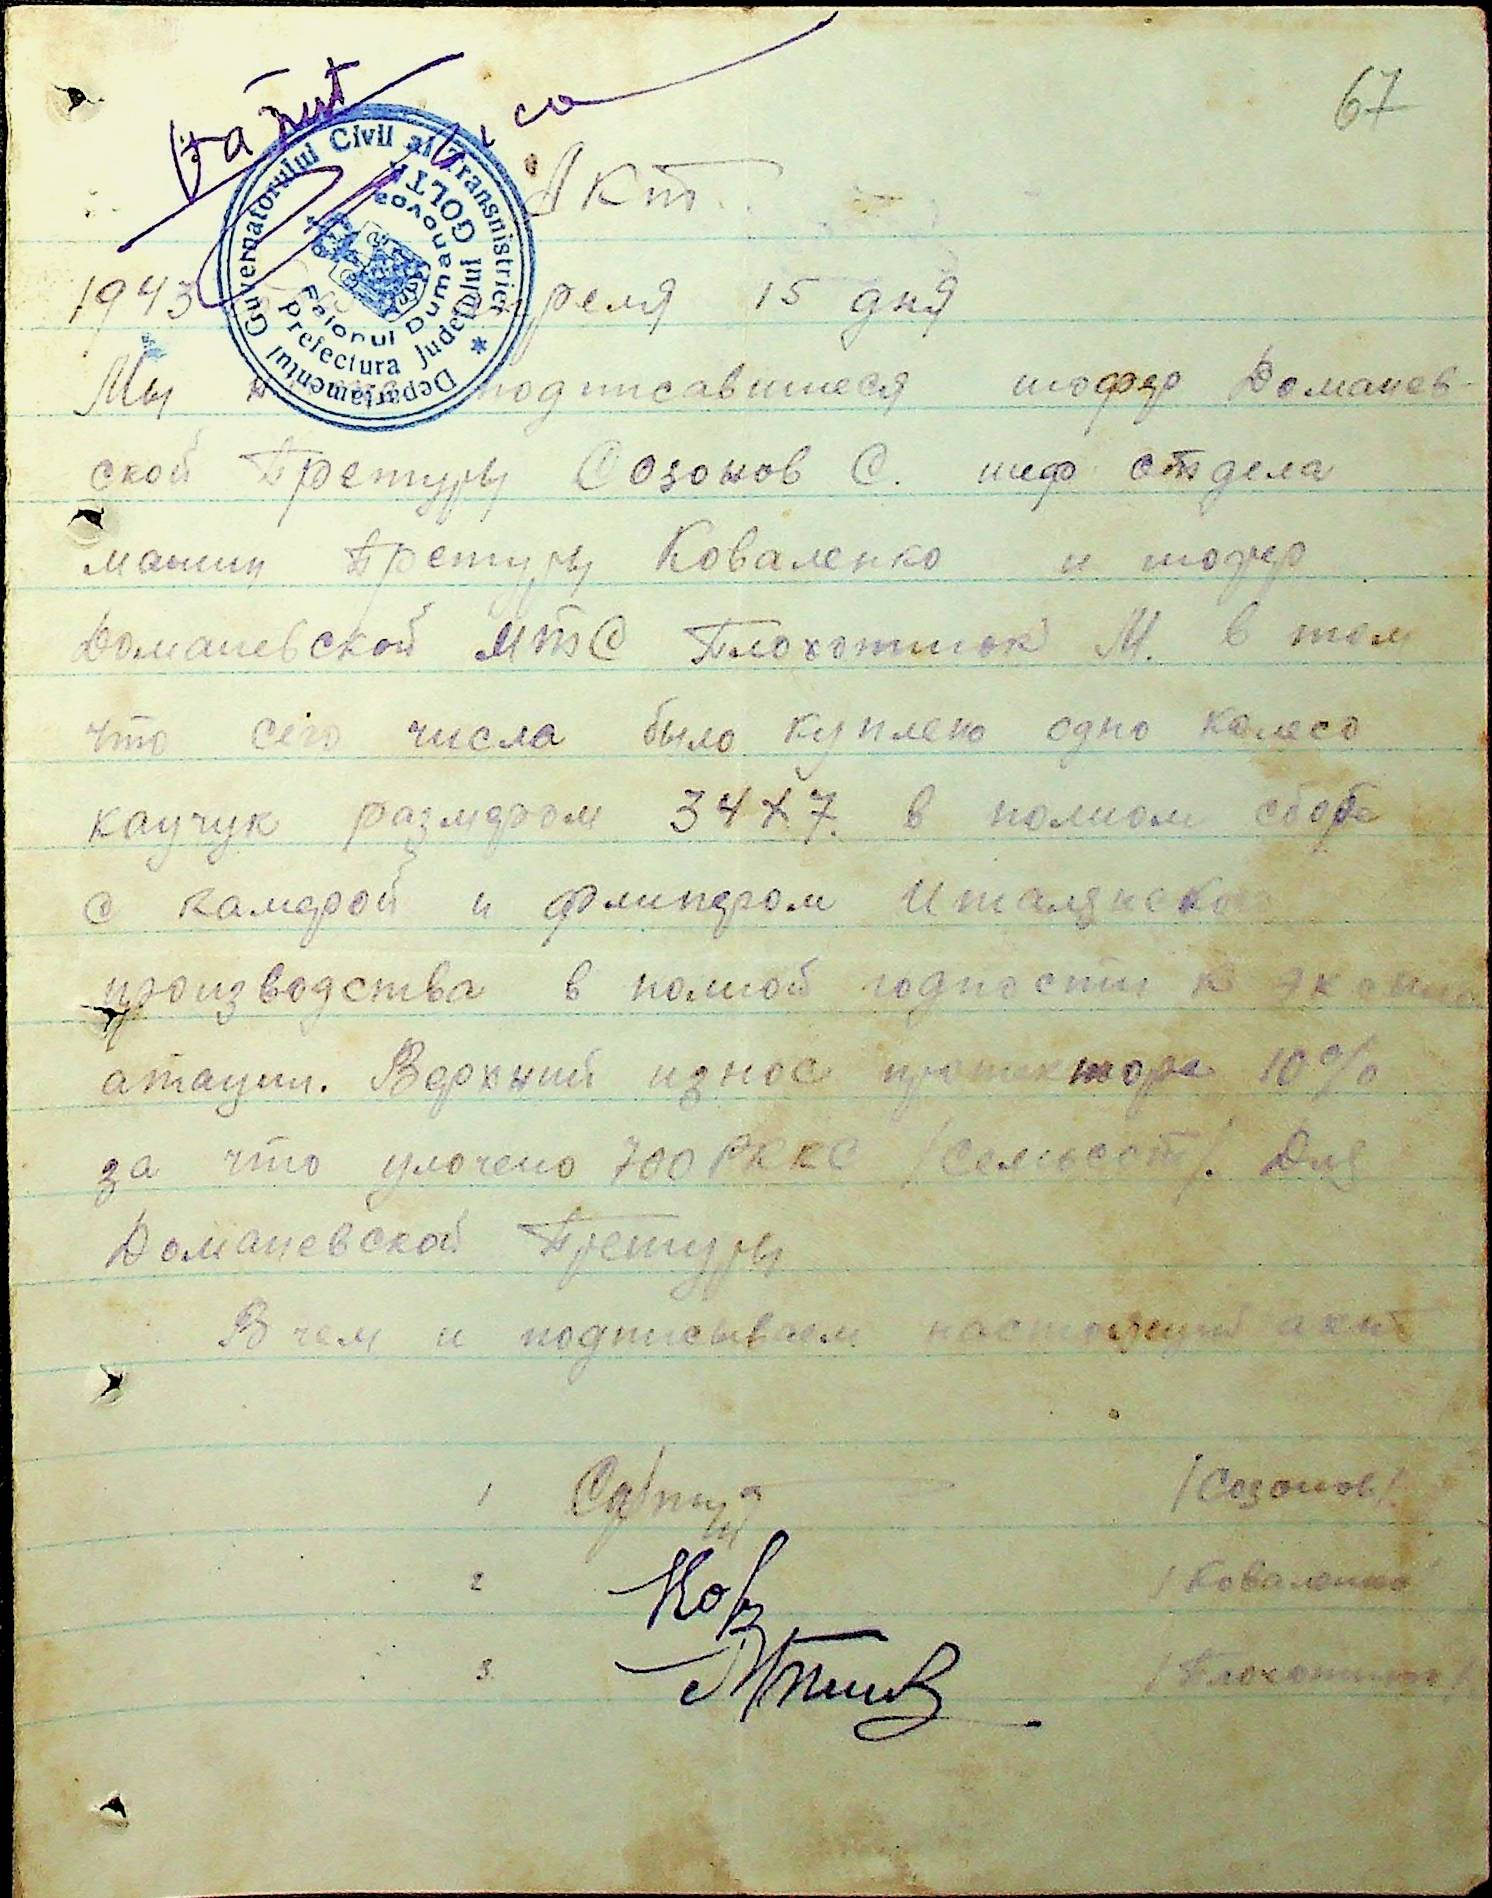 67
Văzut
Guvernatorului Civil al Transnistriei
Departamentul
Prefectura Județului
GOLTA
Raionul Dumanovca
Акт.
1943 апреля 15 дня
Мы подписавшиеся шофер Доманев-
ской Претуры Созонов С. шеф отдела
машин Претуры Коваленко и шофер
Доманевской МТС Плохотнюк М. в том
что сего числа было куплено одно колесо
каучук размером 34х7. в полном сборе
с камерой и флипером Италянского
производства в полной годности к экспло
атации. Верхний износ протектора 10%
за что улочено 700 РККС /семьсот/. Для
Доманевской Претуры
В чем и подписываем настоящий акт
1 /Созонов/.
2 Ков /Коваленко
3. /Плохотнюк/